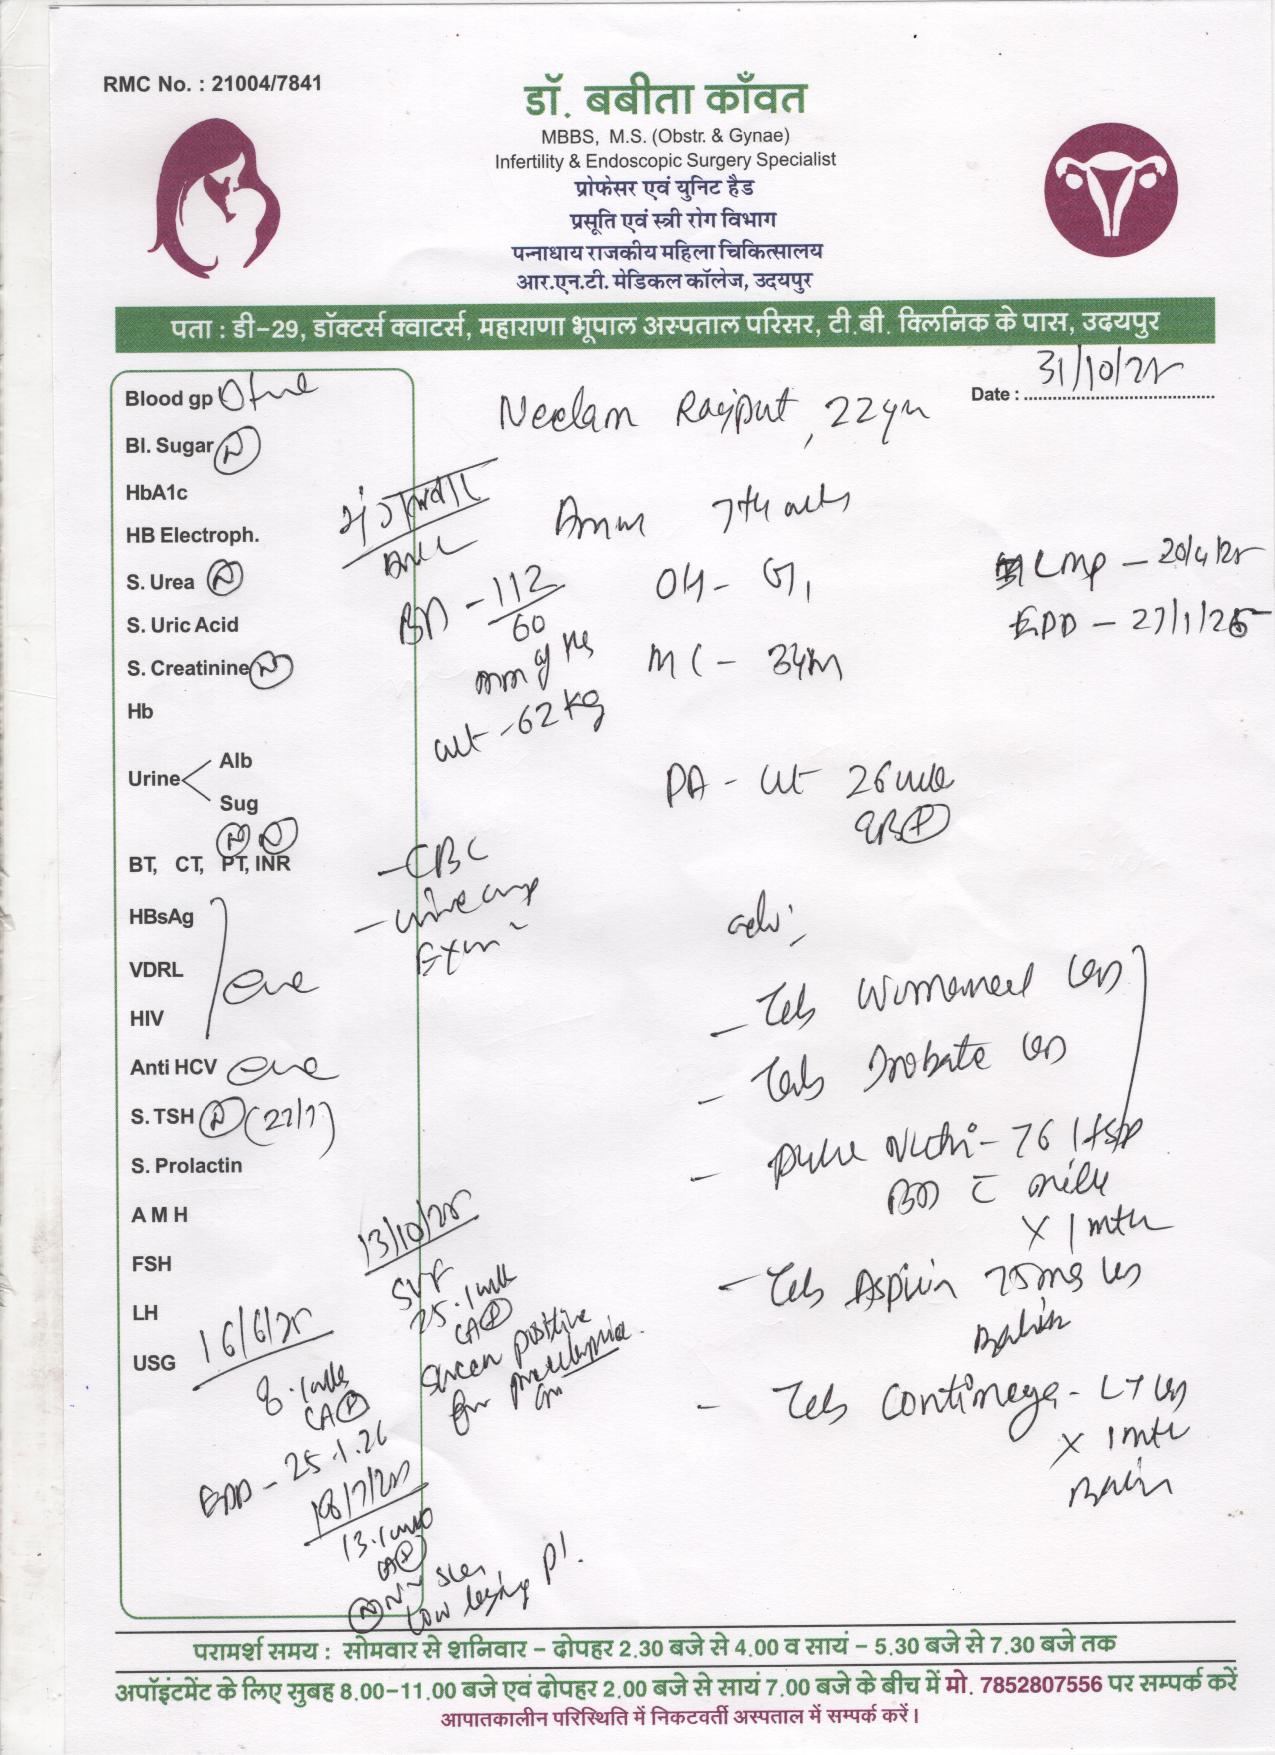 RMC No. : 21004/7841
डॉ. बबीता काँवत
MBBS, M.S. (Obstr. & Gynae)
Infertility & Endoscopic Surgery Specialist
प्रोफेसर एवं युनिट हैड
प्रसूति एवं स्त्री रोग विभाग
पन्नाधाय राजकीय महिला चिकित्सालय
आर.एन.टी. मेडिकल कॉलेज, उदयपुर
पता : डी-29, डॉक्टर्स क्वाटर्स, महाराणा भूपाल अस्पताल परिसर, टी.बी. क्लिनिक के पास, उदयपुर
Date : 31/10/25
Neelam Rajput, 22yrs
Blood gp O +ve
Bl. Sugar N
HbA1c
HB Electroph.
S. Urea N
S. Uric Acid
S. Creatinine N
Hb
Urine Alb
Sug
BT, CT, PT, INR N N
HBsAg
VDRL
HIV
-ve
Anti HCV -ve
S. TSH N (22/7)
S. Prolactin
A M H
FSH
LH
USG 16/6/25
8.1 wks
CA P
EDD - 25.1.26
18/7/25
13.1 wks
CA P
low lying Pl.
13/10/25
25.1 wks
CA P
Screen positive
for preeclampsia
मंगलवार
7th mth
BP - 112/60
mm of Hg
wt - 62 kg
OH - G1
LMP - 20/4/25
EDD - 27/1/26
PA - ut 26 wks
- CBC
- Urine comp
Exm
adv:
- Tab
- Tab
- 1 tsp
BD c milk
x 1 mth
- Tab Aspirin 75mg
- Tab
x 1 mth
परामर्श समय : सोमवार से शनिवार - दोपहर 2.30 बजे से 4.00 व सायं - 5.30 बजे से 7.30 बजे तक
अपॉइंटमेंट के लिए सुबह 8.00-11.00 बजे एवं दोपहर 2.00 बजे से सायं 7.00 बजे के बीच में मो. 7852807556 पर सम्पर्क करें
आपातकालीन परिस्थिति में निकटवर्ती अस्पताल में सम्पर्क करें।